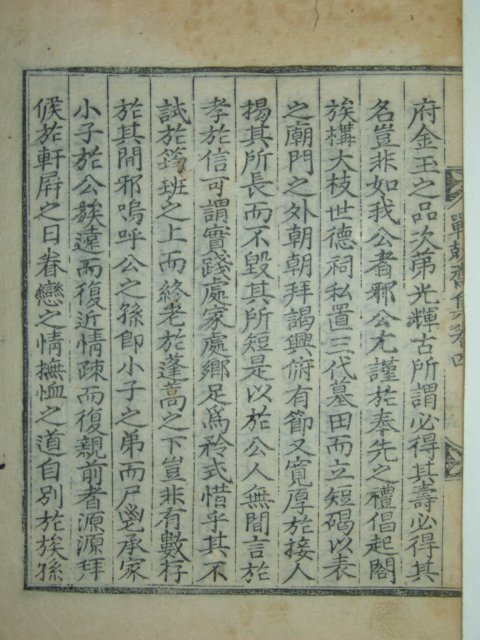 府金玉之品次第光輝古所謂必得其壽必得其
名豈非如我公者邪公尤謹於奉先之禮倡起閤
族構大枝世德祠私置三代墓田而立短碣以表
之廟門之外朝朝拜謁興俯有節又寬厚於接人
揭其所長而不毀其所短是以於公人無間言於
孝於信可謂實踐處家處鄉足爲矜式惜乎其不
試於鵷班之上而終老於蓬蒿之下豈非有數存
於其間邪嗚呼公之孫卽小子之弟而尸鬯承家
小子於公族遠而復近情疎而復親前者源源拜
候於軒屛之日眷戀之情撫恤之道自別於族孫
齋集卷四